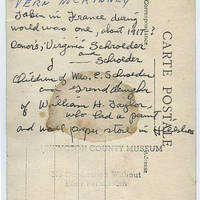 VERN McKINNEY
Taken in France during
world war one, about 1917
Donors, Virginia Schroeder
& Schroeder
Children of Mrs. E. Schroeder
and Granddaughter
of William H. Taylor
who had a paint
and wall paper store in
COUNTY MUSEUM
Without
CARTE POSTALE
Correspondance
Adresse